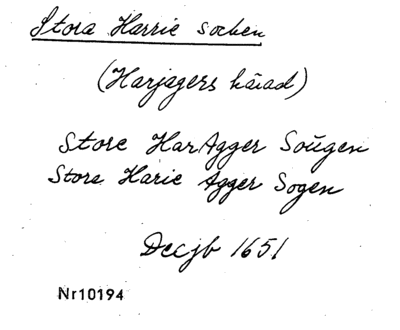 Stora Harrie socken
(Harjagers härad)
Store HarAgger Soügen
Store Harie Agger Sogen
Decjb 1651
Nr10194